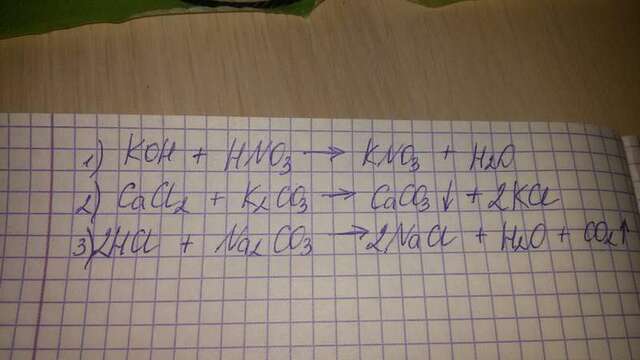 1) KOH + HNO3 → KNO3 + H2O
2) CaCl2 + K2CO3 → CaCO3↓ + 2KCl
3) 2HCl + Na2CO3 → 2NaCl + H2O + CO2↑